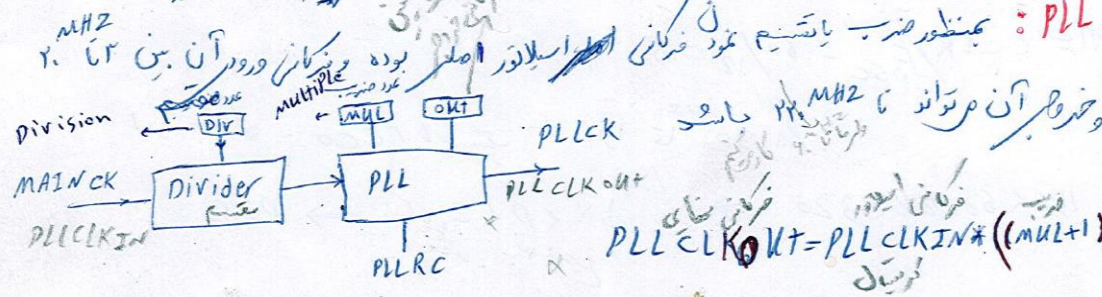 PLL : بمنظور ضرب یا تقسیم نمودن فرکانس اسیلاتور اصلی بوده و فرکانس ورودی آن بین ۳ تا ۲۰ MHZ
و خروجی آن می‌تواند تا MHZ ۲۲۰ باشد
Division
DIV
عدد تقسیم
MULTIPLE
عدد ضرب
MUL
OUT
PLLCK
MAINCK
Divider
مقسم
PLL
PLLCLKIN
PLLCLKOUT
PLLRC
فرکانس
فرکانس اسیلاتور
ضریب
PLLCLKOUT=PLLCLKIN*((MUL+1)
کریستال